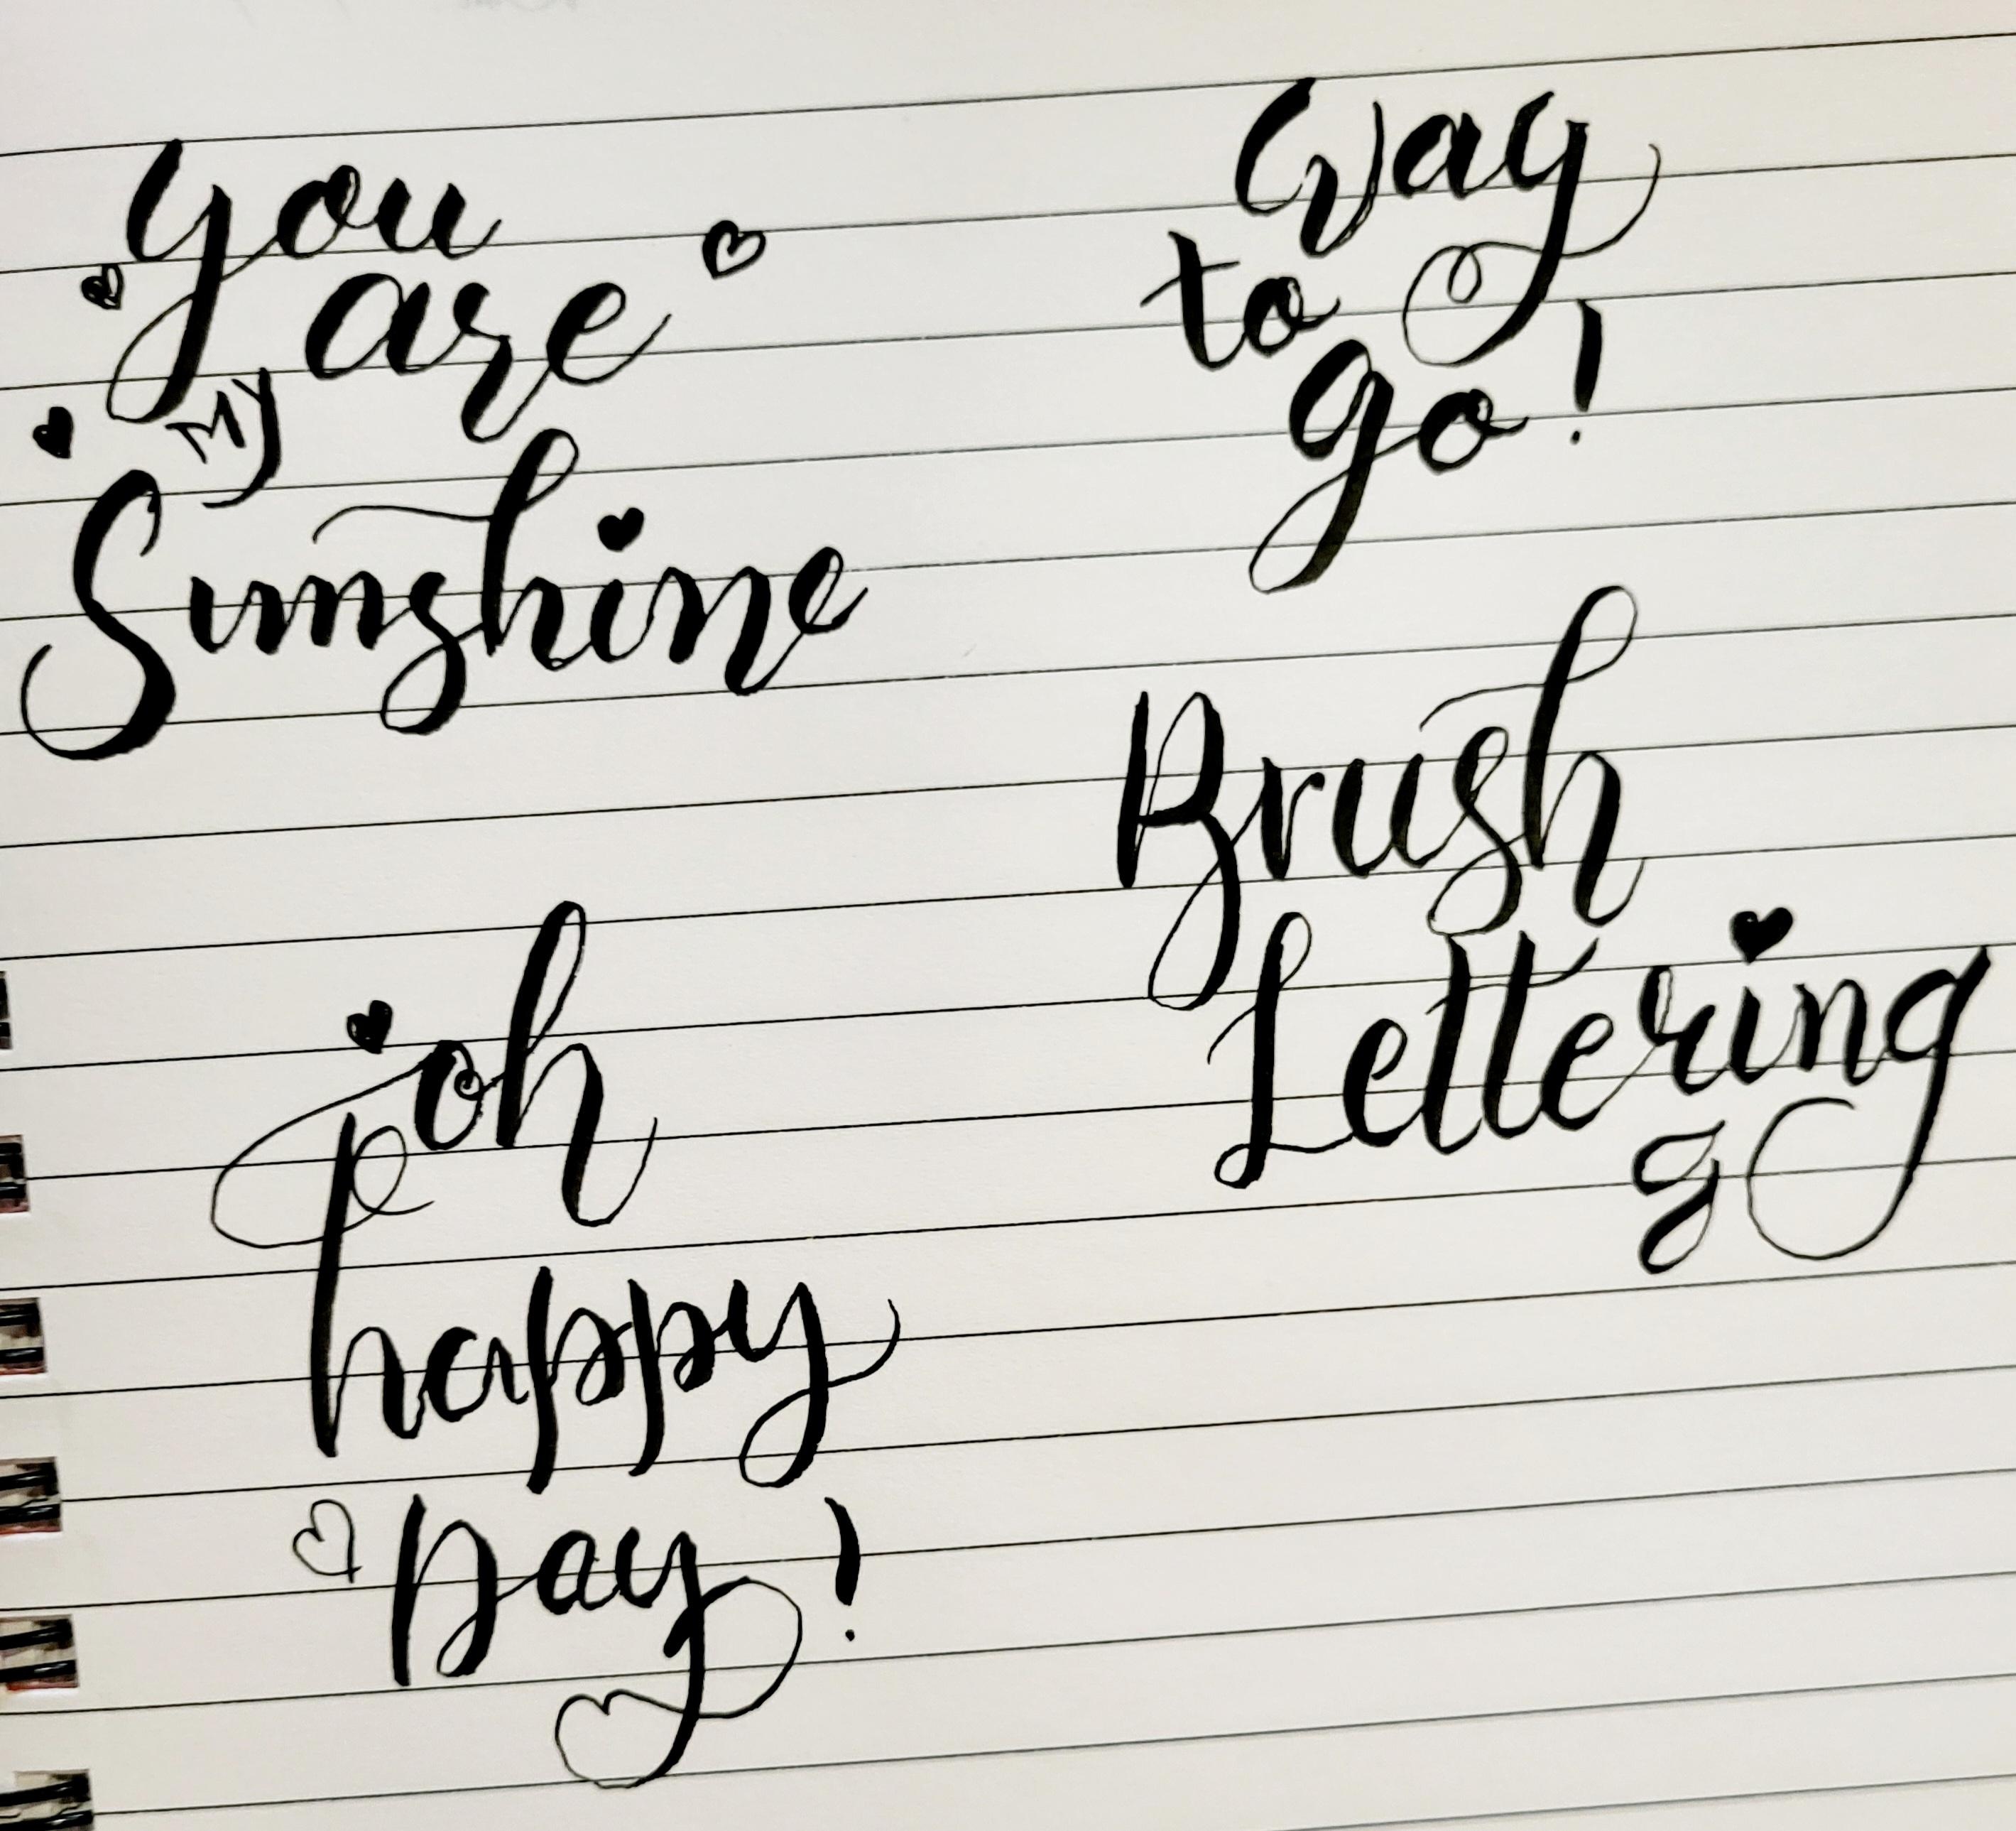 you
are
My
Sunshine
Way
to
go!
Brush
Lettering
g
oh
happy
Day!